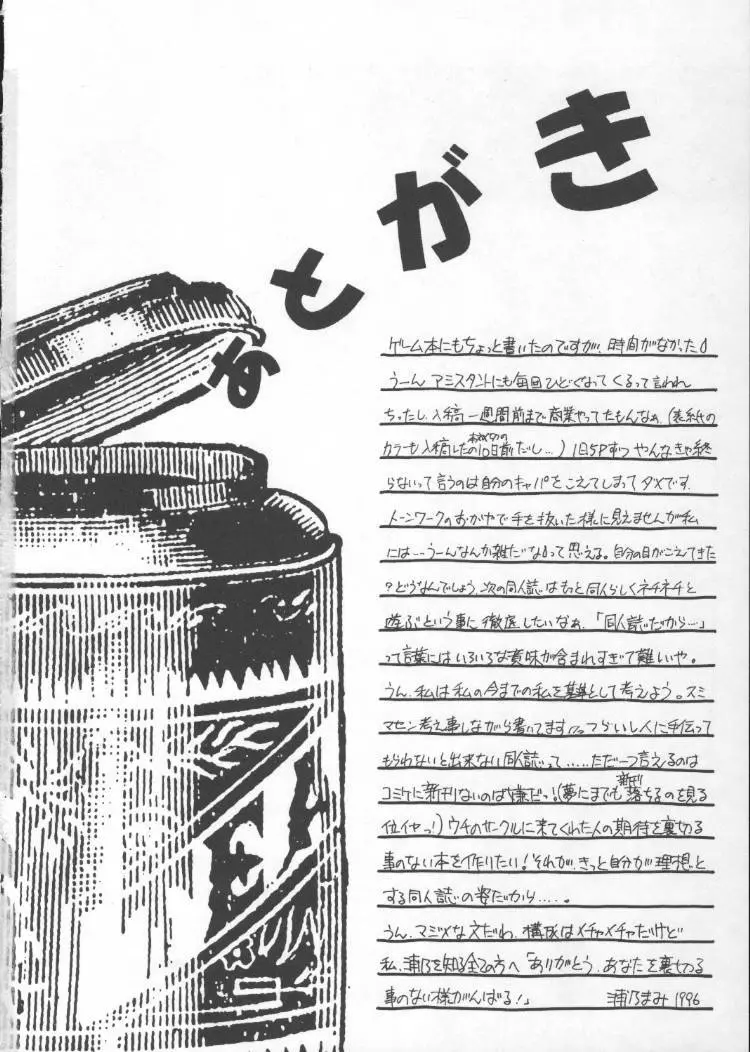 あとがき
ゲーム本にもちょっと書いたのですが、時間がなかった
うーん アシスタントにも毎回ひどくなってくるって言われ
ちゃったし、入稿一週間前まで商業やってたもんなぁ(表紙の
カラーも入稿したの10日前だし…)1日5Pずつやんなきゃ終
らないって言うのは自分のキャパをこえてしまってダメです。
トーンワークのおかげで手を抜いた様に見えませんが私
には…うーんなんか雑だなって思える。自分の目がこえてきた
?どうなんでしょう、次の同人誌はもっと同人らしくネチネチと
遊ぶという事に徹底したいなぁ、「同人誌だから…」
って言葉にはいろいろな意味が含まれすぎて難しいや。
うん、私は私の今までの私を基準として考えよう。スミ
マセン考え事しながら書いてます つらいし人に手伝って
もらわないと出来ない同人誌って……ただ一つ言えるのは
コミケに新刊ないのは嫌だっ!(夢にまでも新刊落ちるのを見る
位イヤっ!)ウチのサークルに来てくれた人の期待を裏切る
事のない本を作りたい!それが、きっと自分が理想と
する同人誌の姿だから……。
うん、マジメな文だわ、構成はメチャメチャだけど
私、浦乃を知る全ての方へ「ありがとう、あなたを裏切る
事のない様がんばる!」 浦乃まみ 1996